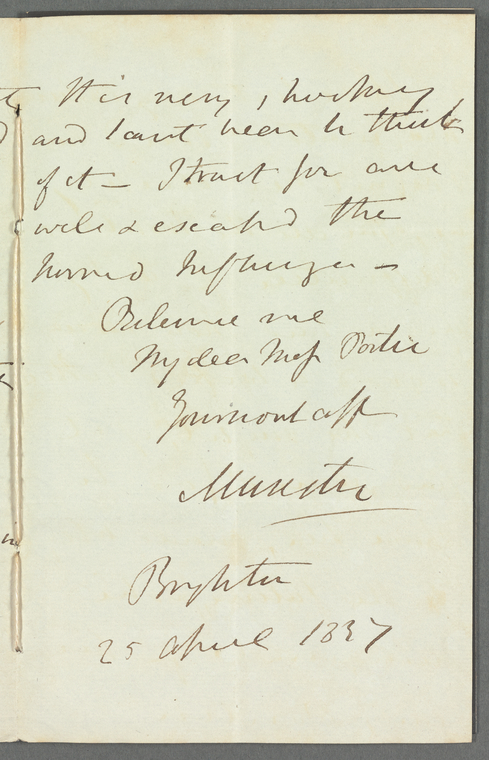 It is very shocking
and I cant bear to think
of it – I trust you are
well & escaped the
horrid Influenza –
Believe me
My dear Miss Porter
Your most aff
Munster
Brighton
25 April 1837